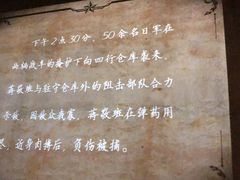 下午2点30分，50余名日军在
两辆战车的掩护下向四行仓库袭来，
蒋敬班与驻守仓库外的阻击部队合力
杀敌，因敌众我寡，蒋敬班在弹药用
尽、近身肉搏后，负伤被捕。